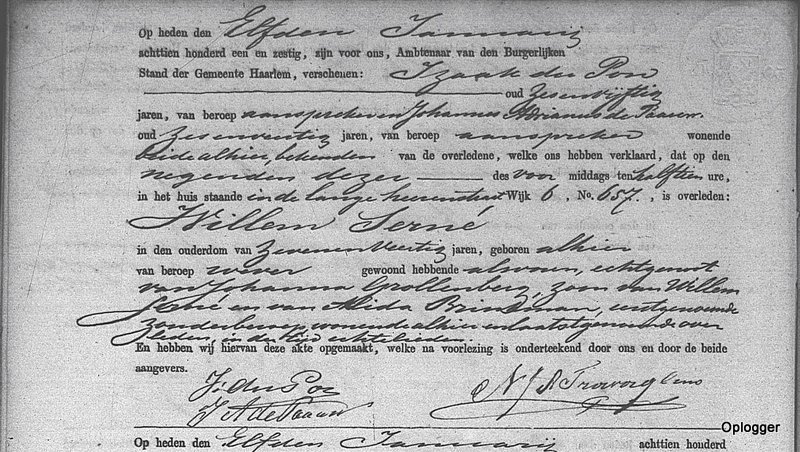 Op heden den Elfden Januarij
achttien honderd een en zestig, zijn voor ons, Ambtenaar van den Burgerlijken
Stand der Gemeente Haarlem, verschenen: Izaak du Pon
oud zesenvijftig
jaren, van beroep aanspreker en Johannes Adrianus de Paauw
oud zesenveertig jaren, van beroep aanspreker wonende
beide alhier, bekenden van de overledene, welke ons hebben verklaard, dat op den
negenden dezer des voor middags ten half tien ure,
in het huis staande in de lange heerenstraat Wijk 6, No. 657, is overleden:
Willem Serné
in den ouderdom van zevenenveertig jaren, geboren alhier
van beroep wever gewoond hebbende alvoren, echtgenoot
van Johanna Grollenberg, zoon van Willem
Serné en van Alida Brinkman, eerstgenoemde
zonder beroep wonende alhier en laatstgenoemde over
leden, in der tijd echtelieden.
En hebben wij hiervan deze akte opgemaakt, welke na voorlezing is onderteekend door ons en door de beide
aangevers.
I. du Pon
J A de Paauw
Op heden den Elfden Januarij achttien honderd
Oplogger